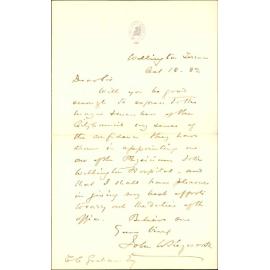 Wellington Terrace
Oct 18. 82
Dear Sir
Will you be good
enough to express to the
Mayor
members of the
City Council my sense
of the confidence they have
shown in appointing me
one of the Physicians to the
Wellington Hospital - and
that I shall have pleasure
in giving my best efforts
to carry out the duties of the
office. Believe me
Yours truly
John